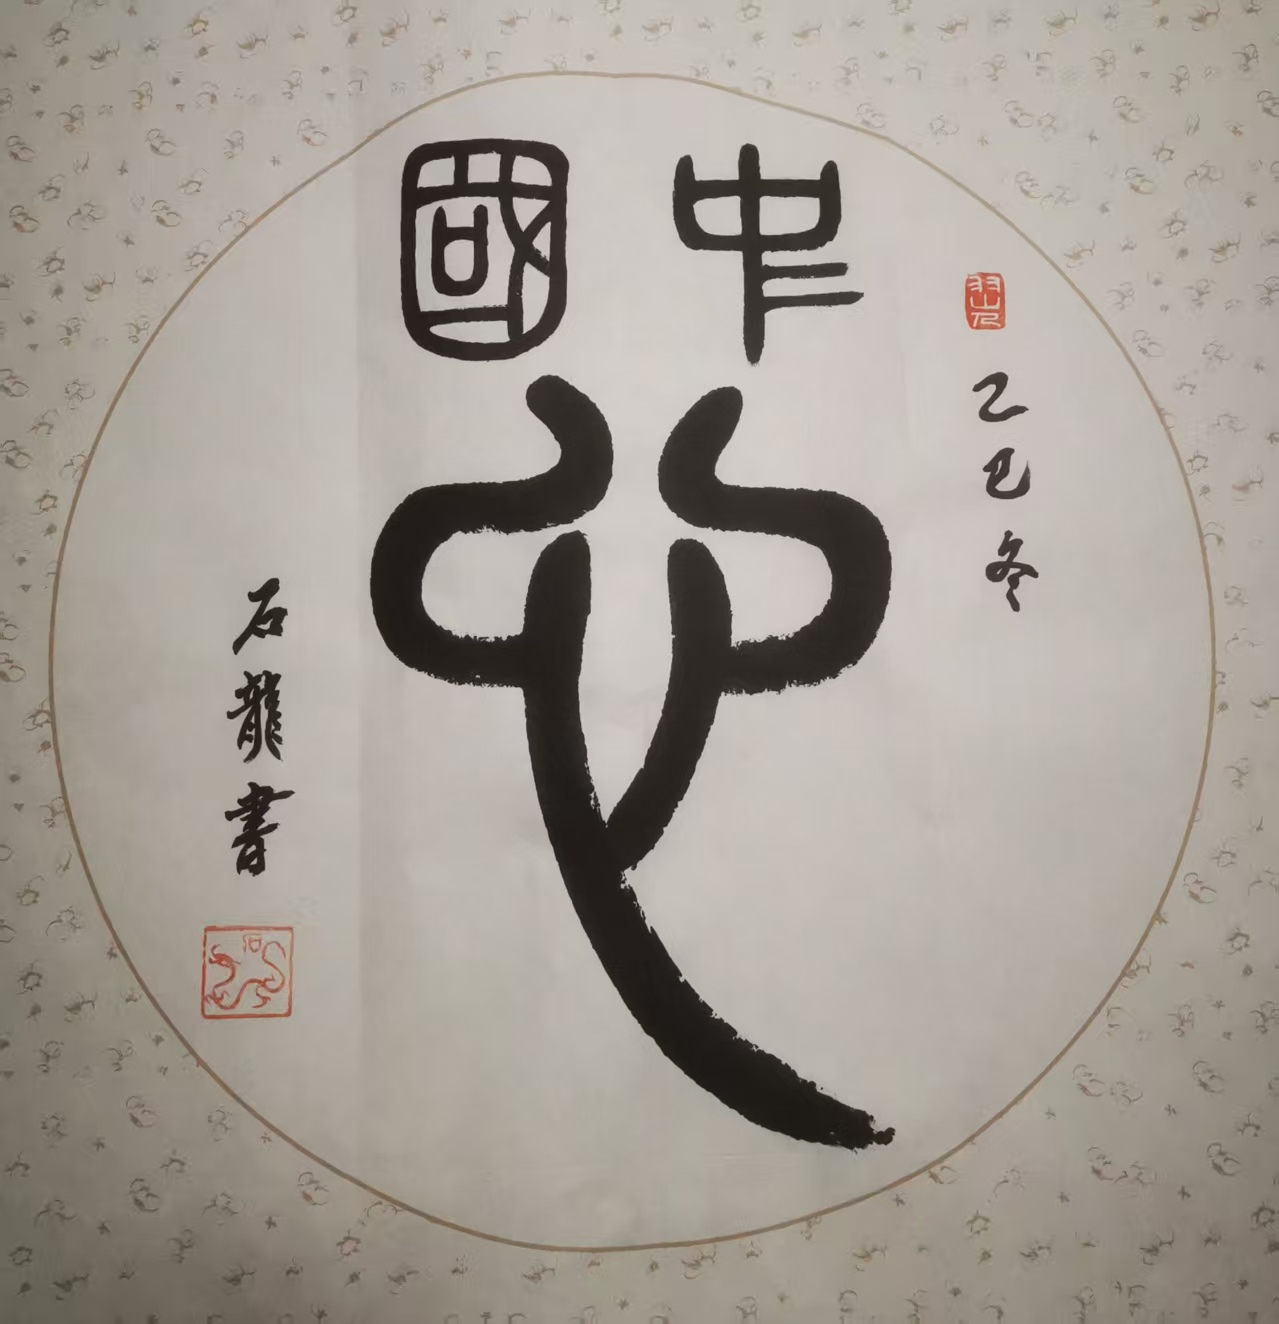 中國
心
乙巳冬
石龍書
石